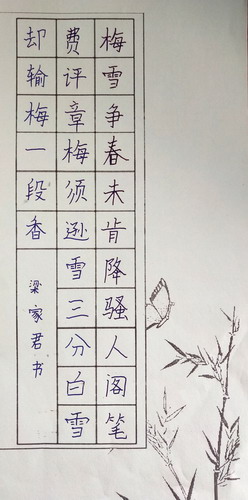 梅雪争春未肯降骚人阁笔
费评章梅须逊雪三分白雪
却输梅一段香
梁家君书